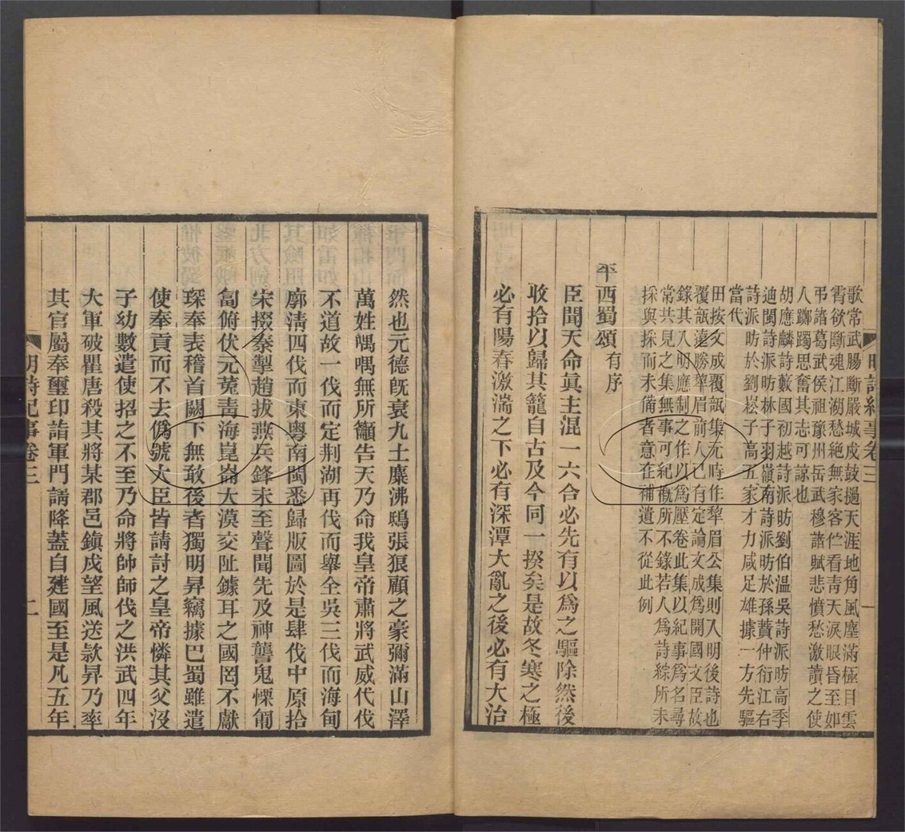 歌常武腸斷嚴城戍鼓撾天涯地角風塵滿極目雲
霄欲斷魂江湖愁絕無家客伫看青天淚眼昏至如
弔諸葛武侯祖豫州岳武穆諸賦悲憤愁激讀之使
人躑躅思奮其志可諒也
胡應麟詩藪國初越詩派昉劉伯溫吳詩派昉高季
迪閩詩派昉林子羽嶺南詩派昉於孫蕡仲衍江右
詩派昉於劉崧子高五家才力咸足雄據一方先驅
當代
田按文成覆瓿集元時作犂眉公集則入明後詩也
覆瓿遠勝犂眉前人已有定論文成為開國文臣故
錄其入明應制之作以為壓卷此集以紀事為名尋
常共見之集無事可紀概所不錄若人為詩綜所未
採與採而未備者意在補遺不從此例
平西蜀頌有序
臣聞天命眞主混一六合必先有以爲之驅除然後
收拾以歸其籠自古及今同一揆矣是故冬寒之極
必有陽春激湍之下必有深潭大亂之後必有大治
明詩紀事卷三
一
然也元德旣衰九土麋沸鴟張狼顧之豪彌滿山澤
萬姓喁喁無所籲告天乃命我皇帝肅將武威代伐
不道故一伐而定荆湖再伐而舉全吳三伐而海甸
廓清四伐而東粤南閩悉歸版圖於是肆伐中原拾
宋掇秦掣趙拔燕兵鋒未至聲聞先及神讋鬼慄匍
匐俯伏元菟青海崑崙大漠交阯鐻耳之國罔不獻
琛奉表稽首闕下無敢後者獨明昇竊據巴蜀雖遣
使奉貢而不去僞號大臣皆請討之皇帝憐其父没
子幼數遣使招之不至乃命將帥師伐之洪武四年
大軍破瞿唐殺其將某郡邑鎮戍望風送款昇乃率
其官屬奉璽印詣軍門請降蓋自建國至是凡五年
明詩紀事卷三
二